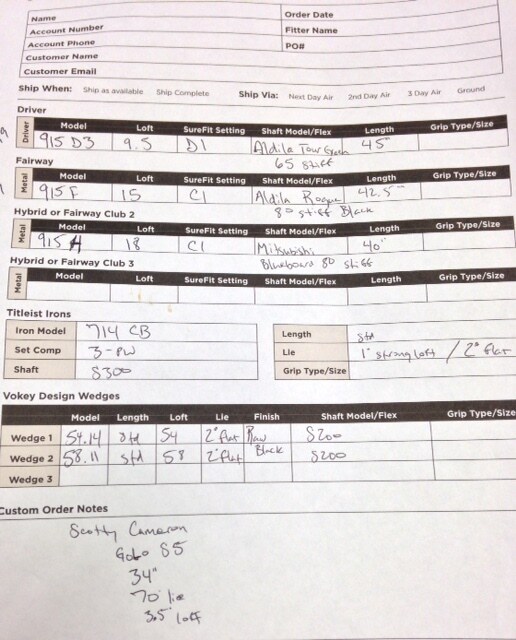 Name
Order Date
Account Number
Fitter Name
Account Phone
PO#
Customer Name
Customer Email
Ship When: Ship as available Ship Complete Ship Via: Next Day Air 2nd Day Air 3 Day Air Ground
Driver
Driver Model Loft SureFit Setting Shaft Model/Flex Length Grip Type/Size
915 D3 9.5 D1 Aldila Tour Green 45"
65 stiff
Fairway
Metal Model Loft SureFit Setting Shaft Model/Flex Length Grip Type/Size
915 F 15 C1 Aldila Rogue 42.5"
80 stiff Black
Hybrid or Fairway Club 2
Metal Model Loft SureFit Setting Shaft Model/Flex Length Grip Type/Size
915 H 18 C1 Mitsubishi 40"
80 stiff
Hybrid or Fairway Club 3
Metal Model Loft SureFit Setting Shaft Model/Flex Length Grip Type/Size
Titleist Irons
Iron Model 714 CB
Length Std
Set Comp 3-PW
Lie 1° strong loft / 2° flat
Shaft S300
Grip Type/Size
Vokey Design Wedges
Model Length Loft Lie Finish Shaft Model/Flex Grip Type/Size
Wedge 1 54.14 Std 54 2° flat Raw S200
Wedge 2 58.11 Std 58 2° flat Black S200
Wedge 3
Custom Order Notes
Scotty Cameron
GoLo S5
34"
70° lie
3.5° loft